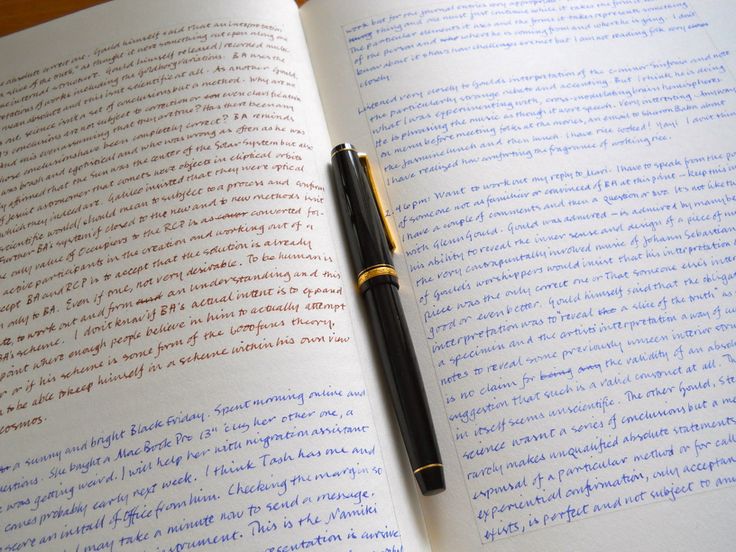 absolute correct one. Gould himself said that an interpretation
a slice of the truth, as though it were something cut open along one
the internal structure. Gould himself released/recorded multi-
retations of works including the Goldberg Variations. BA uses the
mean absolute and this isn't scientific at all. As another Gould,
out, science isn't a set of conclusions but a method. Why are we
conclusions are not subject to correction or even clarification
and his ever assuming that they are true? Has there been any
whose conclusions have been completely correct? BA reminds
was brash and egotistical and who was wrong as often as he was
ly affirmed that the Sun was the center of the Solar System but also
Jesuit astronomer that comets were objects in elliptical orbits
which they indeed are. Galileo insisted that they were optical
scientific world) should mean to subject to a process and conform
Further BA's system if closed to the new and to new methods isn't
the only value of Occupiers to the RCP is as converted fol-
active participants in the creation and working out of a
accept BA and RCP is to accept that the solution is already
only to BA. Even if one, not very desirable. To be human is
to work out and form an understanding and this
BA's scheme. I don't know if BA's actual intent is to expand
point where enough people believe in him to actually attempt
or if his scheme is some form of the 1000 furs theory.
to be able to keep himself in a scheme within his own view
cosmos.
a sunny and bright Black Friday. Spent morning online and
questions. She bought a MacBook Pro 13" c'us her other one, a
was getting weird. I will help her with migration assistant
comes probably early next week. I think Tash has one and
secure an install of Office from him. Checking the margin so
I may take a minute now to send a message.
instrument. This is the Namiki
presentation is cursive.
work but for one journal entries very appropriate
thing and one must just on and when it takes the form of something
The particular elements it uses and the forms it takes represent something
of the person and where she is coming from and where she is going. I don't
know about it shows how challenges are met but I am not reading folk very
closely
Listened very closely to Gould's interpretation of the C-minor Sinfonia and note
the particularly strange rubato and accenting. But I think he is doing
what I was experimenting with, cross-modulating brain hemispheres
He is phrasing the music as though it were speech. Very interesting. Anyway
at manm before meeting folks at the movies, an email to Sharon Baba about
the Jasmine lunch and then lunch. I have rice cooked! Yay! I don't think
I have realized how comforting the fragrance of working rice.
2:40 pm: Want to work out my reply to Mari. I have to speak from the po
of someone not a familiar or convinced of BA at this point – keep this in
I have a couple of comments and then a question or two. It's not like th
with Glenn Gould. Gould was admired – is admired by many be
his ability to reveal the inner sense and design of a piece of mu
the very contrapuntally involved music of Johann Sebastian
of Gould's worshippers would insist that his interpretation o
piece was the only correct one or that someone else's inter
good or even better. Gould himself said that the obligat
interpretation was to "reveal a slice of the truth" as
a specimen and the artist's interpretation a way of cu
notes to reveal some previously unseen interior stru
is no claim for being any the validity of an absol
suggestion that such is a valid construct at all. Th
in itself seems unscientific. The other Gould, Ste
science wasn't a series of conclusions but a me
rarely makes unqualified absolute statements
espousal of a particular method or for call
experiential confirmation, only acceptan
exists, is perfect and not subject to am